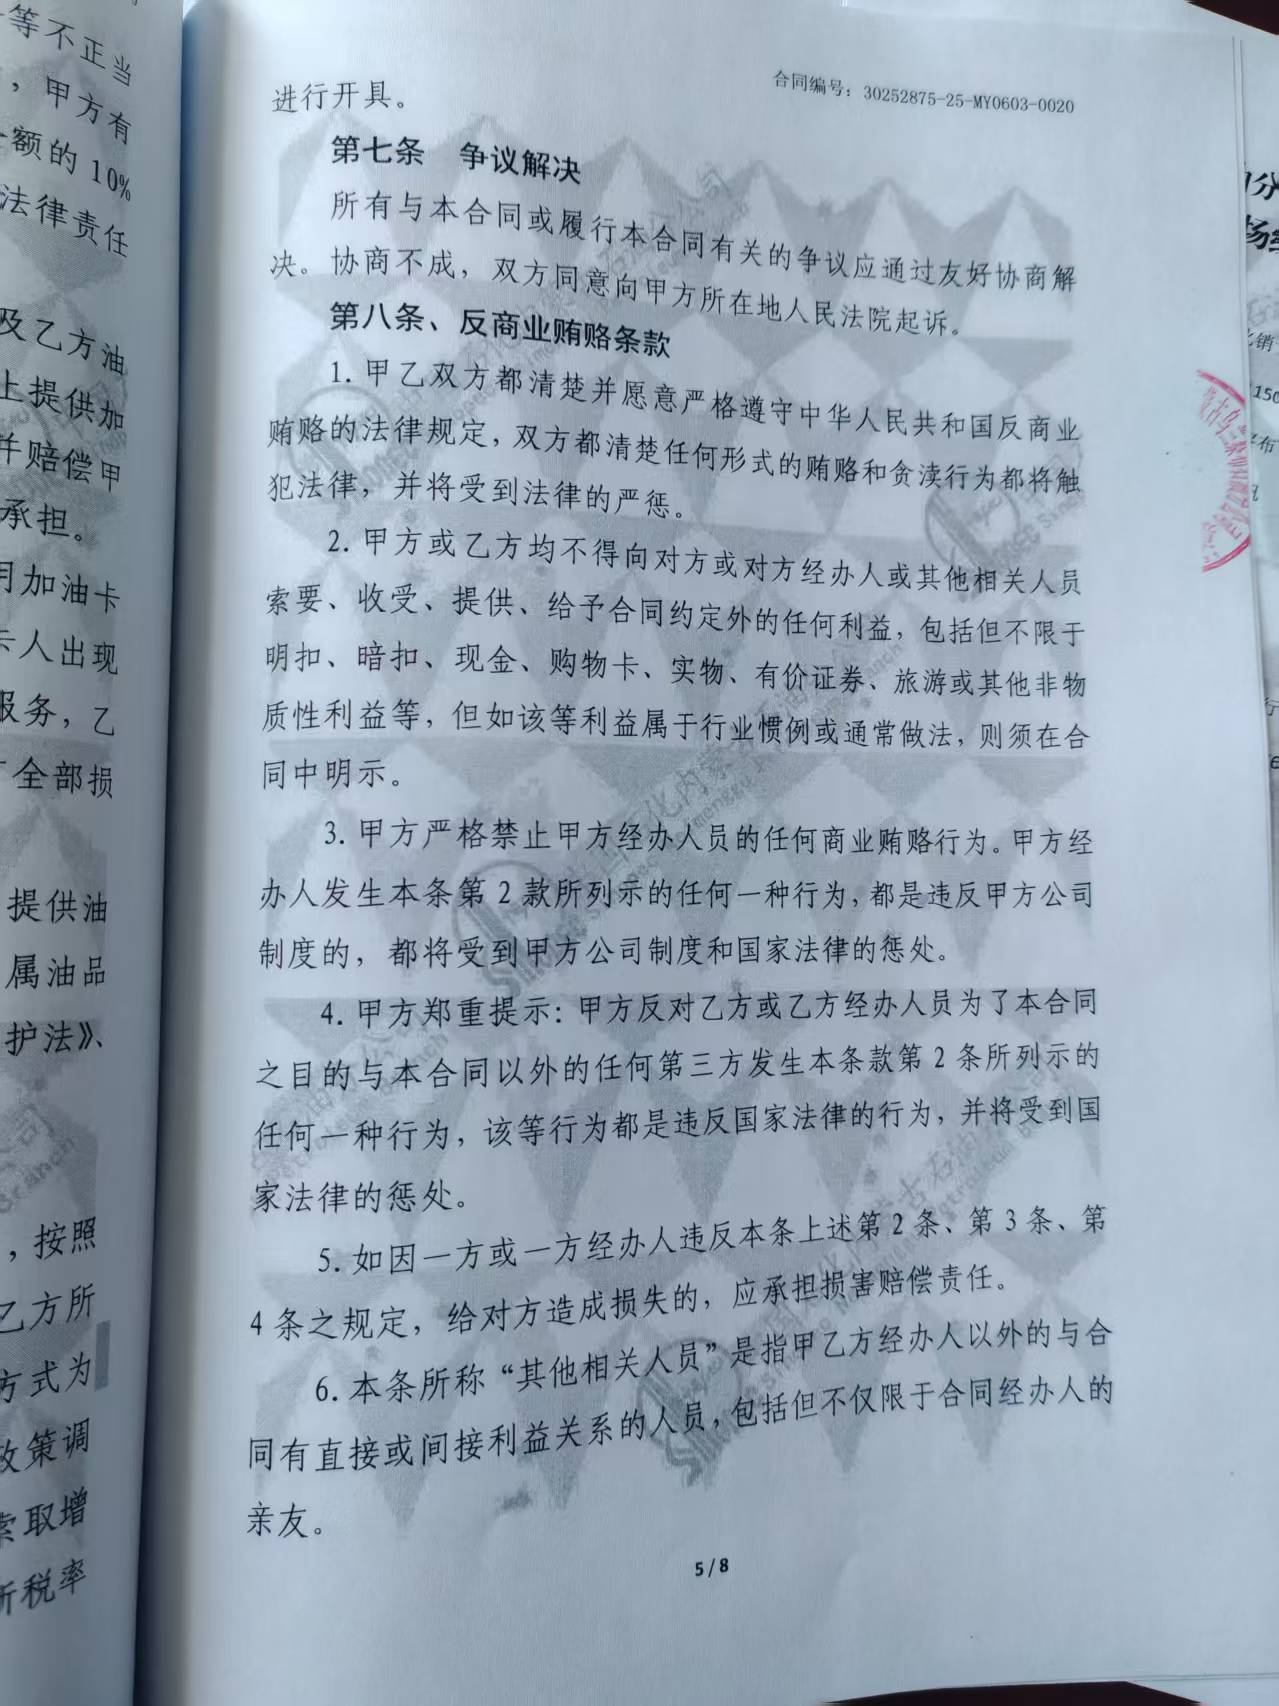 合同编号：30252875-25-MY0603-0020
进行开具。
第七条 争议解决
所有与本合同或履行本合同有关的争议应通过友好协商解
决。协商不成，双方同意向甲方所在地人民法院起诉。
第八条、反商业贿赂条款
1. 甲乙双方都清楚并愿意严格遵守中华人民共和国反商业
贿赂的法律规定，双方都清楚任何形式的贿赂和贪渎行为都将触
犯法律，并将受到法律的严惩。
2. 甲方或乙方均不得向对方或对方经办人或其他相关人员
索要、收受、提供、给予合同约定外的任何利益，包括但不限于
明扣、暗扣、现金、购物卡、实物、有价证券、旅游或其他非物
质性利益等，但如该等利益属于行业惯例或通常做法，则须在合
同中明示。
3. 甲方严格禁止甲方经办人员的任何商业贿赂行为。甲方经
办人发生本条第 2 款所列示的任何一种行为，都是违反甲方公司
制度的，都将受到甲方公司制度和国家法律的惩处。
4. 甲方郑重提示：甲方反对乙方或乙方经办人员为了本合同
之目的与本合同以外的任何第三方发生本条款第 2 条所列示的
任何一种行为，该等行为都是违反国家法律的行为，并将受到国
家法律的惩处。
5. 如因一方或一方经办人违反本条上述第 2 条、第 3 条、第
4 条之规定，给对方造成损失的，应承担损害赔偿责任。
6. 本条所称“其他相关人员”是指甲乙方经办人以外的与合
同有直接或间接利益关系的人员，包括但不仅限于合同经办人的
亲友。
5 / 8
等不正当
，甲方有
额的 10%
法律责任
及乙方油
上提供加
并赔偿甲
承担。
用加油卡
卡人出现
服务，乙
全部损
提供油
属油品
护法》、
，按照
乙方所
方式为
政策调
索取增
新税率